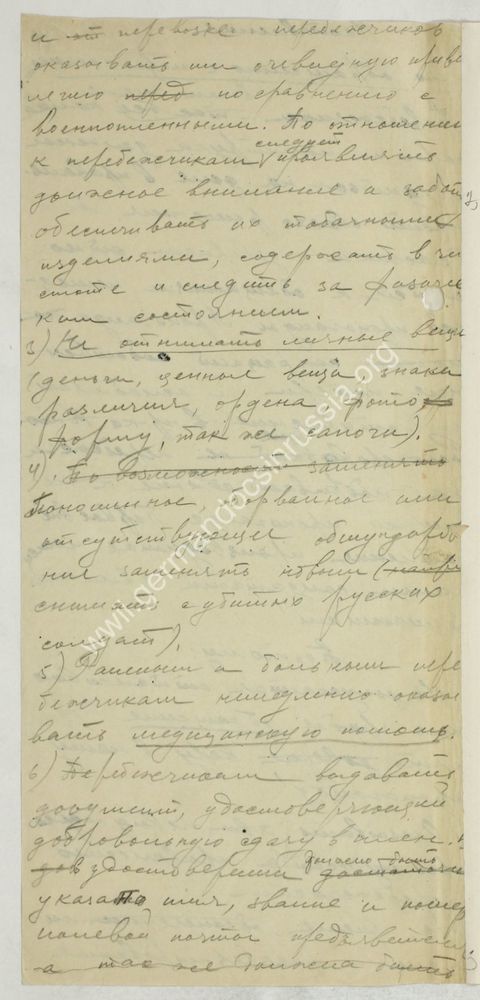 и от перевозке перебежчиков
оказывать им очевидную приви
легию перед по сравнению с
военнопленными. По отношению
к перебежчикам следует проявлять
должное внимание и забот
обеспечивать их табачными
изделиями, содержать в чи
стоте и следить за физиче
ким состоянием.
3) Не отнимать личные вещи
(деньги, ценные вещи, знаки
различия, ордена, фото
форму, так же сапоги).
4). По возможности заменять
Поношенное, порванное или
отсутствующее обмундирова
ние заменять новым (
снимать с убитых русских
солдат).
5) Раненым и больным пере
бежчикам немедленно оказы
вать медицинскую помощь.
6) Перебежчикам выдавать
документ, удостоверяющий
добровольную сдачу в плен.
удостоверении должно быть
указано имя, звание и номер
полевой почты предъявителя
а так же должна быть
www.germandocsinrussia.org